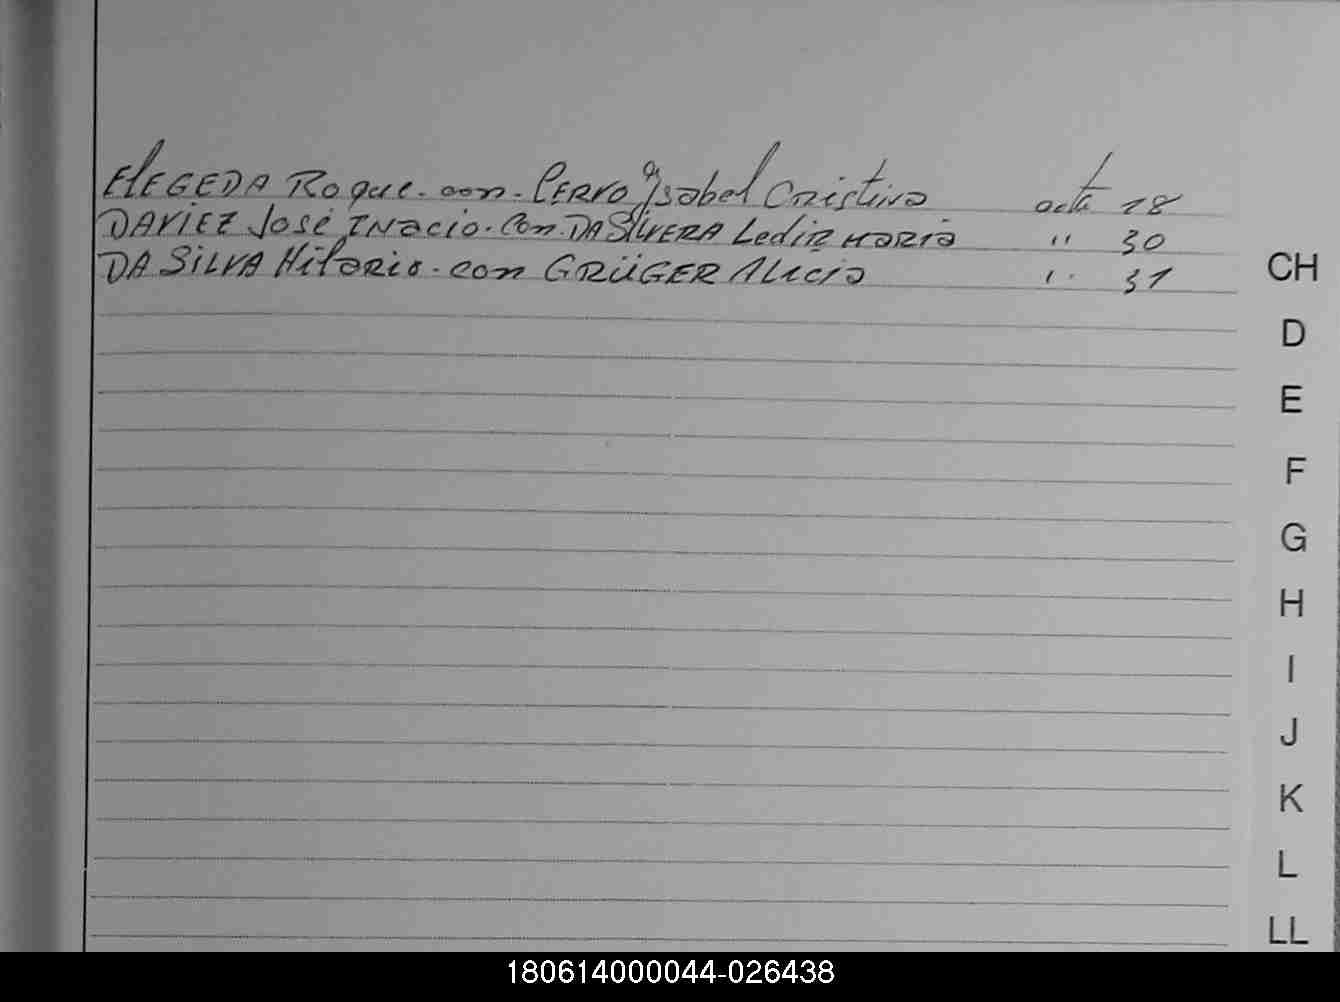 ElEGEDA Roque. con. CERVO Ysabel Cristina acta 18
DAVIEZ José INacio. Con. DA SILVERA Lediz MARIA " 30
DA SILVA Hilario. con GRÜGER Alicia " 31
CH
D
E
F
G
H
I
J
K
L
LL
180614000044-026438